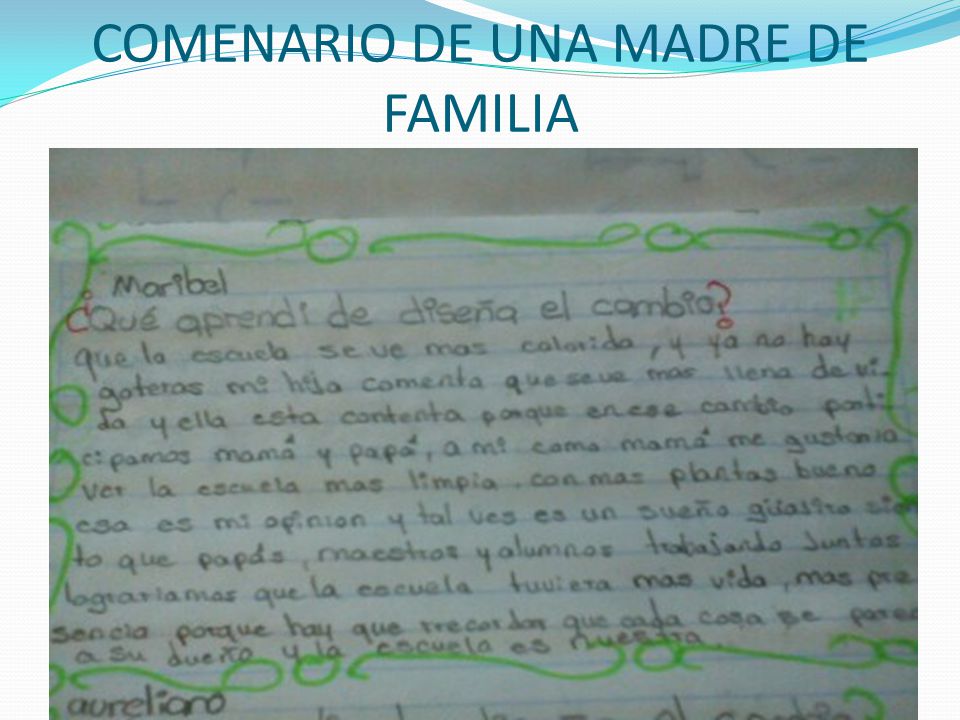 COMENARIO DE UNA MADRE DE
FAMILIA
Maribel
¿Qué aprendi de diseña el cambio?
que la escuela se ve mas colorida, y ya no hay
goteras mi hija comenta que se ve mas llena de vi-
da y ella esta contenta porque en ese cambio parti
cipamos mamá y papá, a mi como mamá me gustaria
ver la escuela mas limpia. con mas plantas bueno
esa es mi opinion y tal ves es un sueño sien
to que papás, maestros y alumnos trabajando juntos
lograriamos que la escuela tuviera mas vida, mas pre
sencia porque hay que rrecordar que cada cosa se parece
a su dueño y la escuela es nuestra.
aureliano